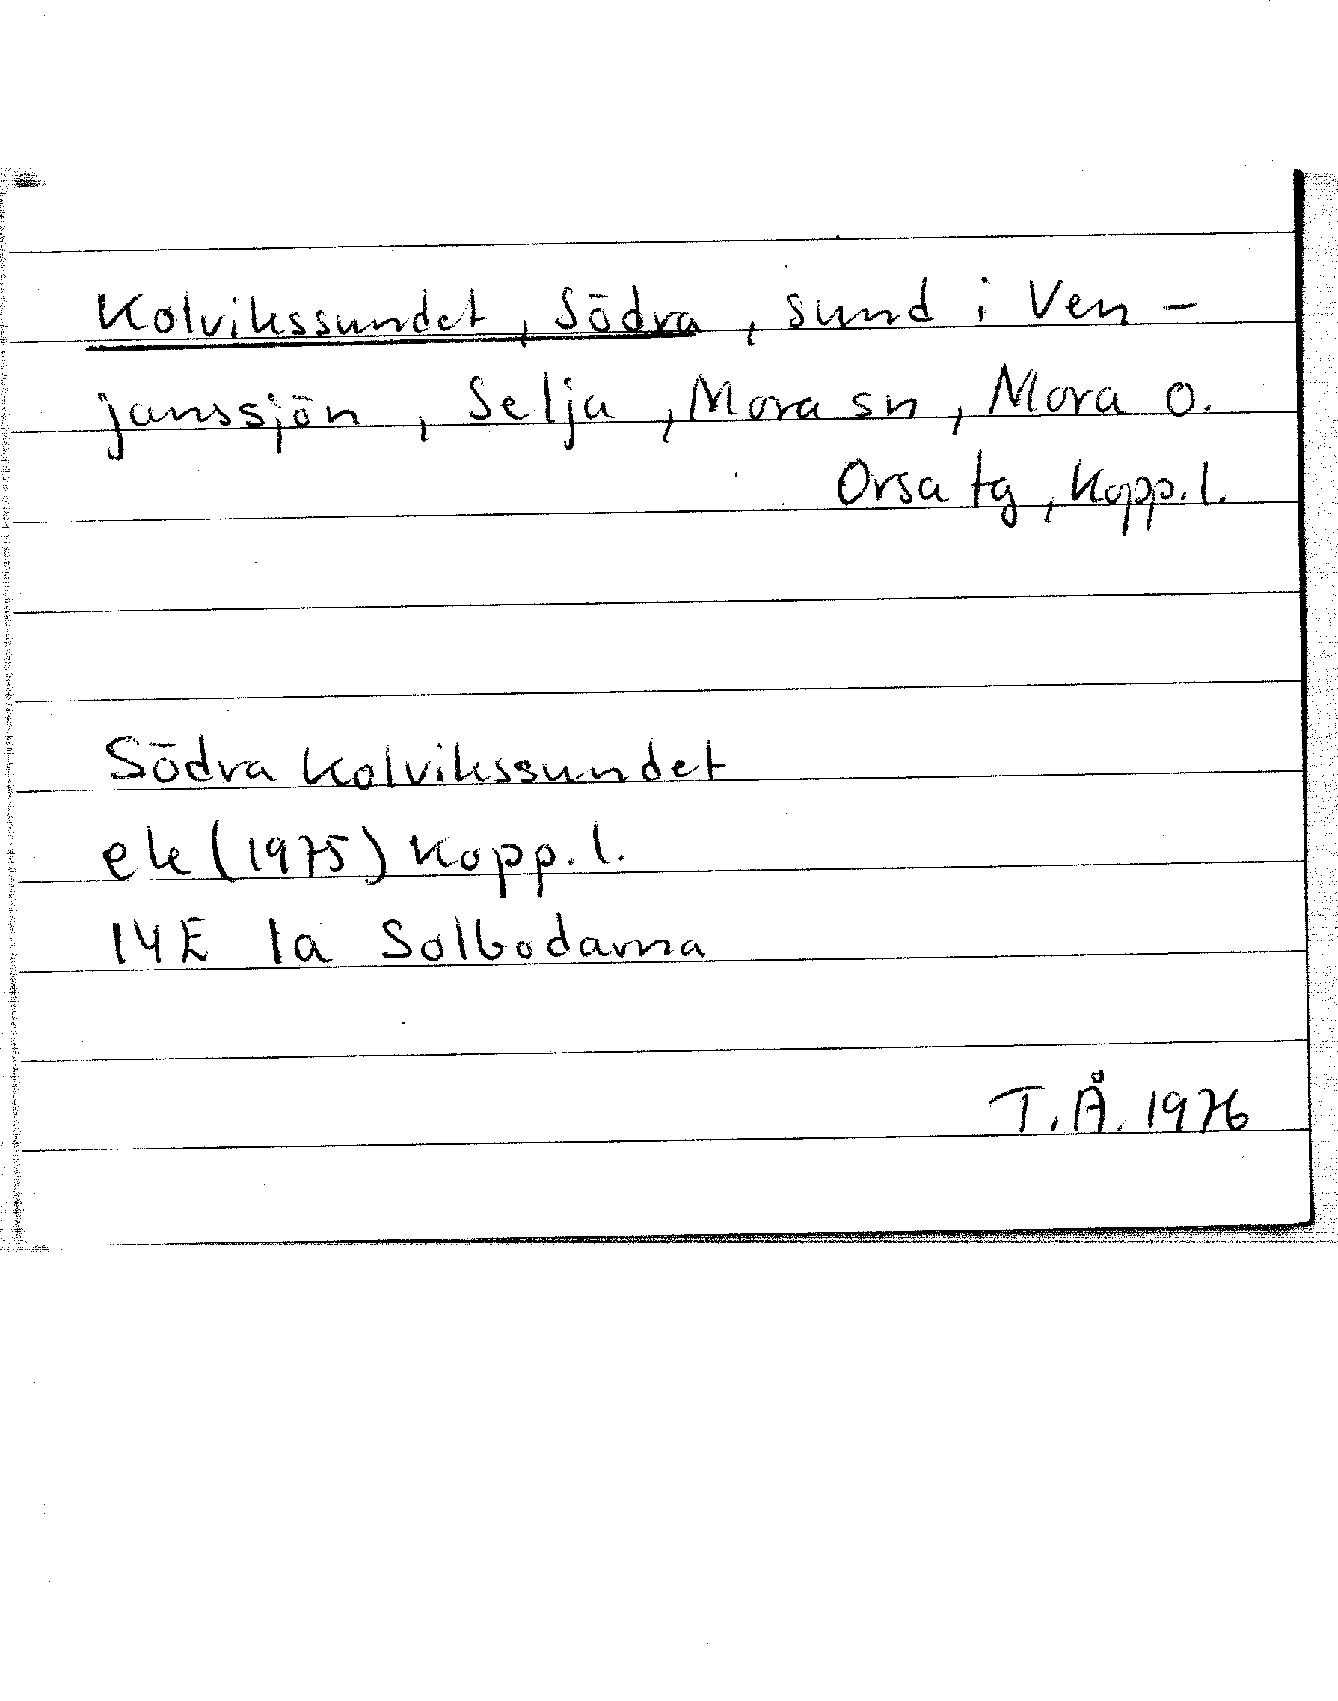 Kolvikssundet, Södra, sund i Ven-
janssjön, Selja, Mora sn, Mora o.
Orsa tg, Kopp. l.
Södra Kolvikssundet
ek (1975) Kopp. l.
14E 1a Solbodarna
T.Å. 1976